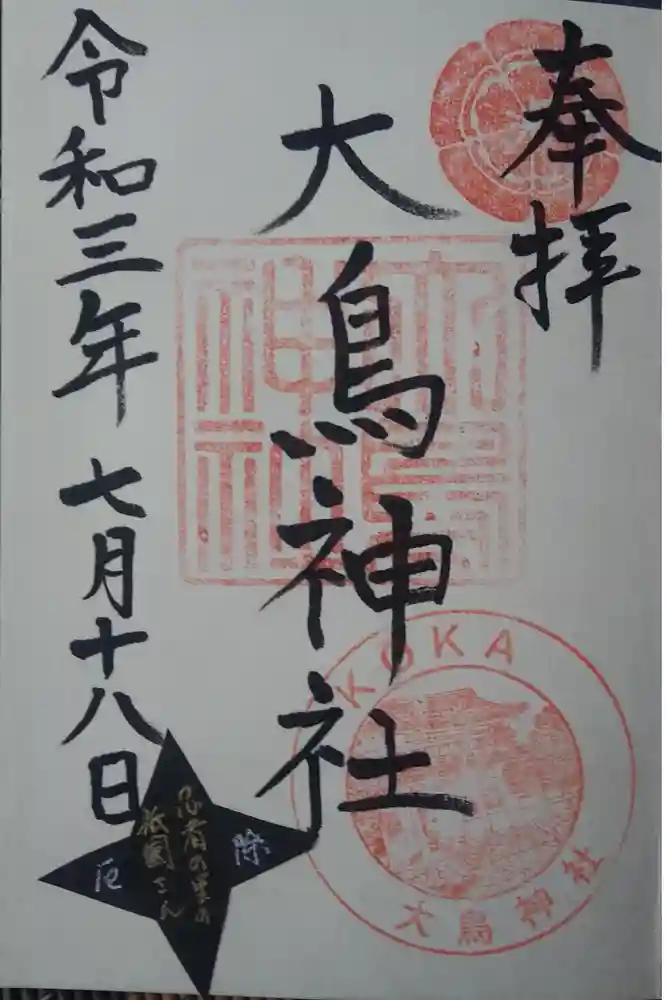 奉拝
大鳥神社
大鳥神社
KOKA
大鳥神社
令和三年 七月十八日
忍者の里の
祇園さん
厄除